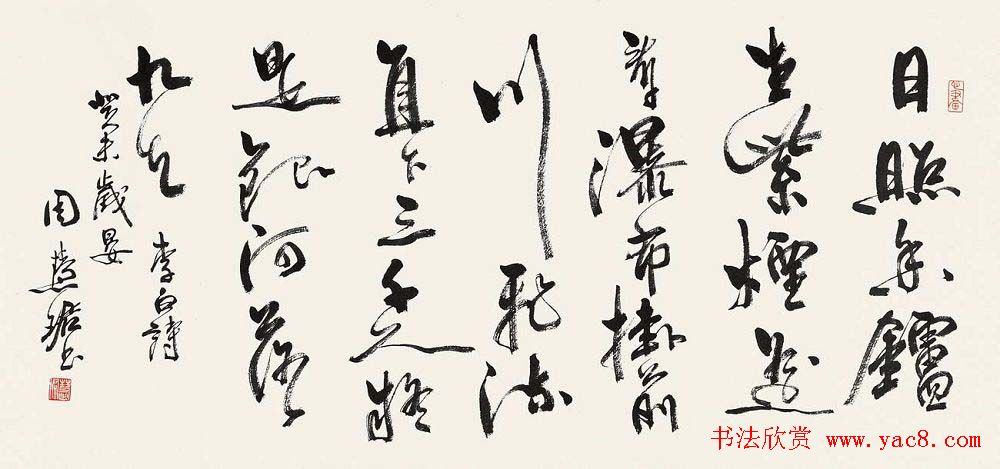 日照香鑪
生紫煙遙
看瀑布掛前
川飛流
直下三千尺疑
是銀河落
九天
李白詩
癸未歲晏
周慧珺書
书法欣赏 www.yac8.com